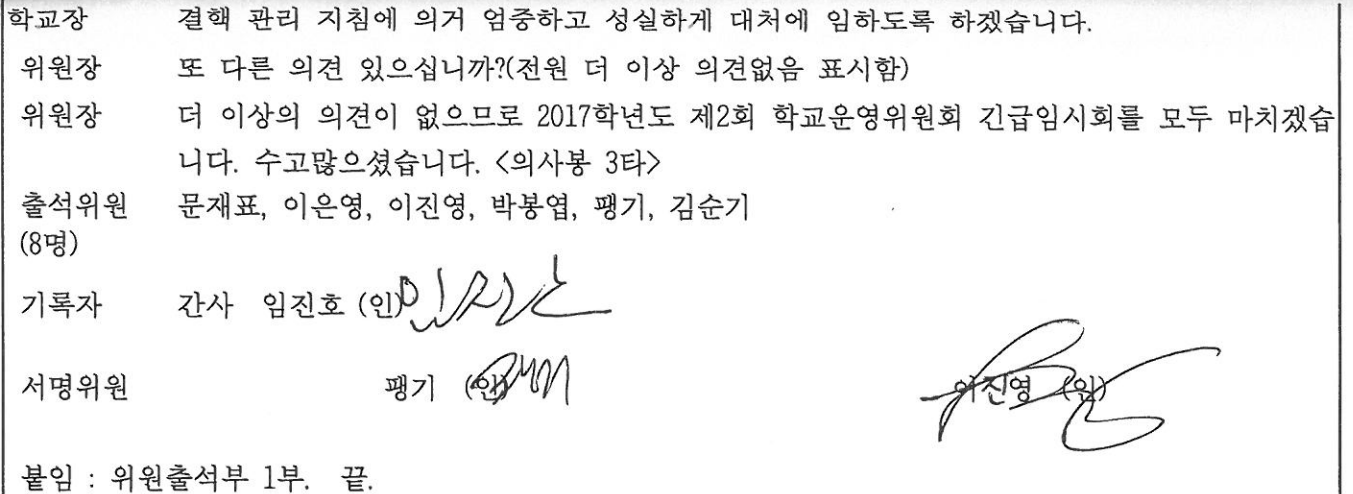 학교장 결핵 관리 지침에 의거 엄중하고 성실하게 대처에 임하도록 하겠습니다.
위원장 또 다른 의견 있으십니까?(전원 더 이상 의견없음 표시함)
위원장 더 이상의 의견이 없으므로 2017학년도 제2회 학교운영위원회 긴급임시회를 모두 마치겠습
니다. 수고많으셨습니다. <의사봉 3타>
출석위원 문재표, 이은영, 이진영, 박봉엽, 팽기, 김순기
(8명)
기록자 간사 임진호 (인)
서명위원 팽기 (인) 이진영 (인)
붙임 : 위원출석부 1부. 끝.